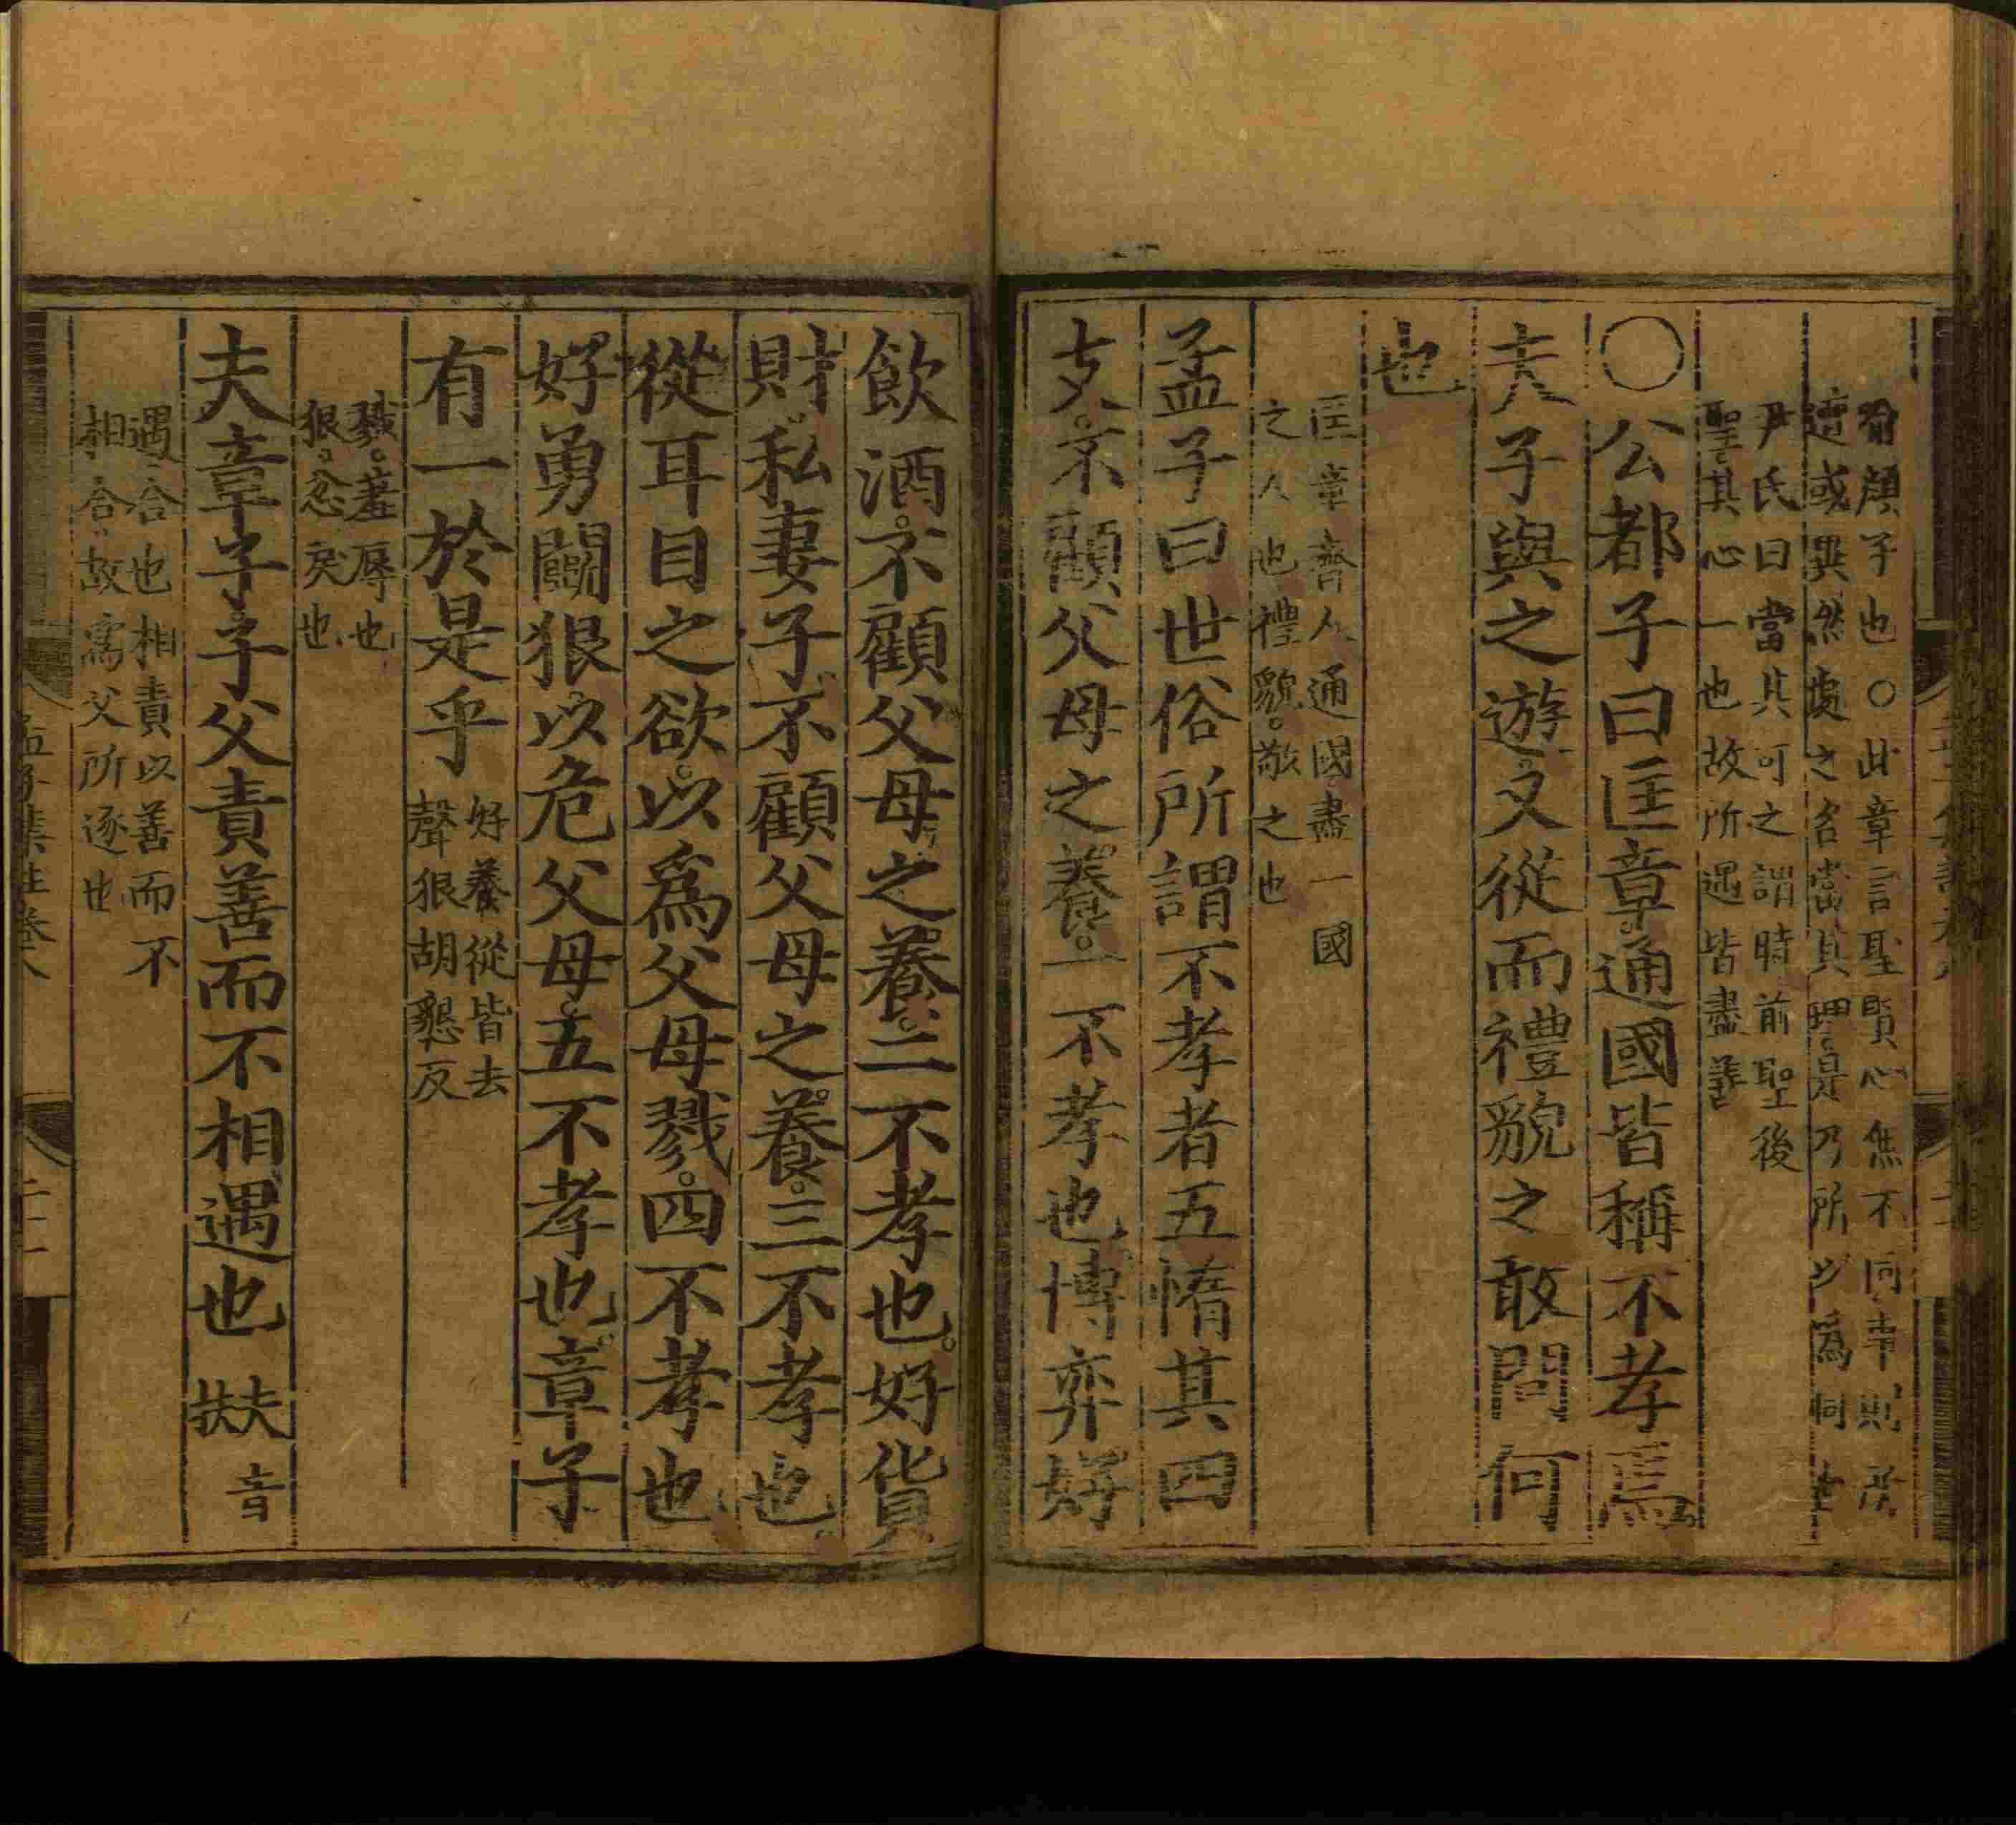 猶顏子也○此章言聖賢心無不同事則所
遭或異然處之各當其理是乃所以爲同也
尹氏曰當其可之謂時前聖後
聖其心一也故所遇皆盡善
○公都子曰匡章通國皆稱不孝焉
夫子與之遊又從而禮貌之敢問何
也
匡章齊人通國盡一國
之人也禮貌敬之也
孟子曰世俗所謂不孝者五惰其四
支不顧父母之養一不孝也博弈好
飮酒不顧父母之養二不孝也好貨
財私妻子不顧父母之養三不孝也
從耳目之欲以爲父母戮四不孝也
好勇鬭狠以危父母五不孝也章子
有一於是乎
好養從皆去
聲狠胡懇反
戮羞辱也
狠忿戾也
夫章子子父責善而不相遇也
夫音
扶
遇合也相責以善而不
相合故爲父所逐也
孟子集註卷八
二十一